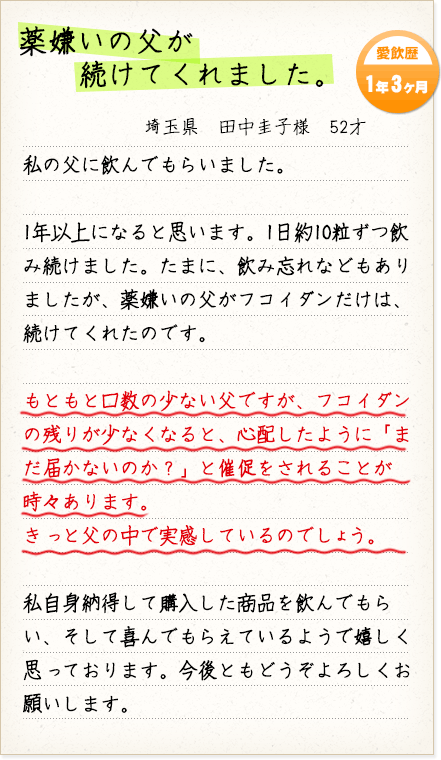 薬嫌いの父が
続けてくれました。
愛飲歴
1年3ヶ月
埼玉県　田中圭子様　52才
私の父に飲んでもらいました。
1年以上になると思います。1日約10粒ずつ飲
み続けました。たまに、飲み忘れなどもあり
ましたが、薬嫌いの父がフコイダンだけは、
続けてくれたのです。
もともと口数の少ない父ですが、フコイダン
の残りが少なくなると、心配したように「ま
だ届かないのか？」と催促をされることが
時々あります。
きっと父の中で実感しているのでしょう。
私自身納得して購入した商品を飲んでもら
い、そして喜んでもらえているようで嬉しく
思っております。今後ともどうぞよろしくお
願いします。